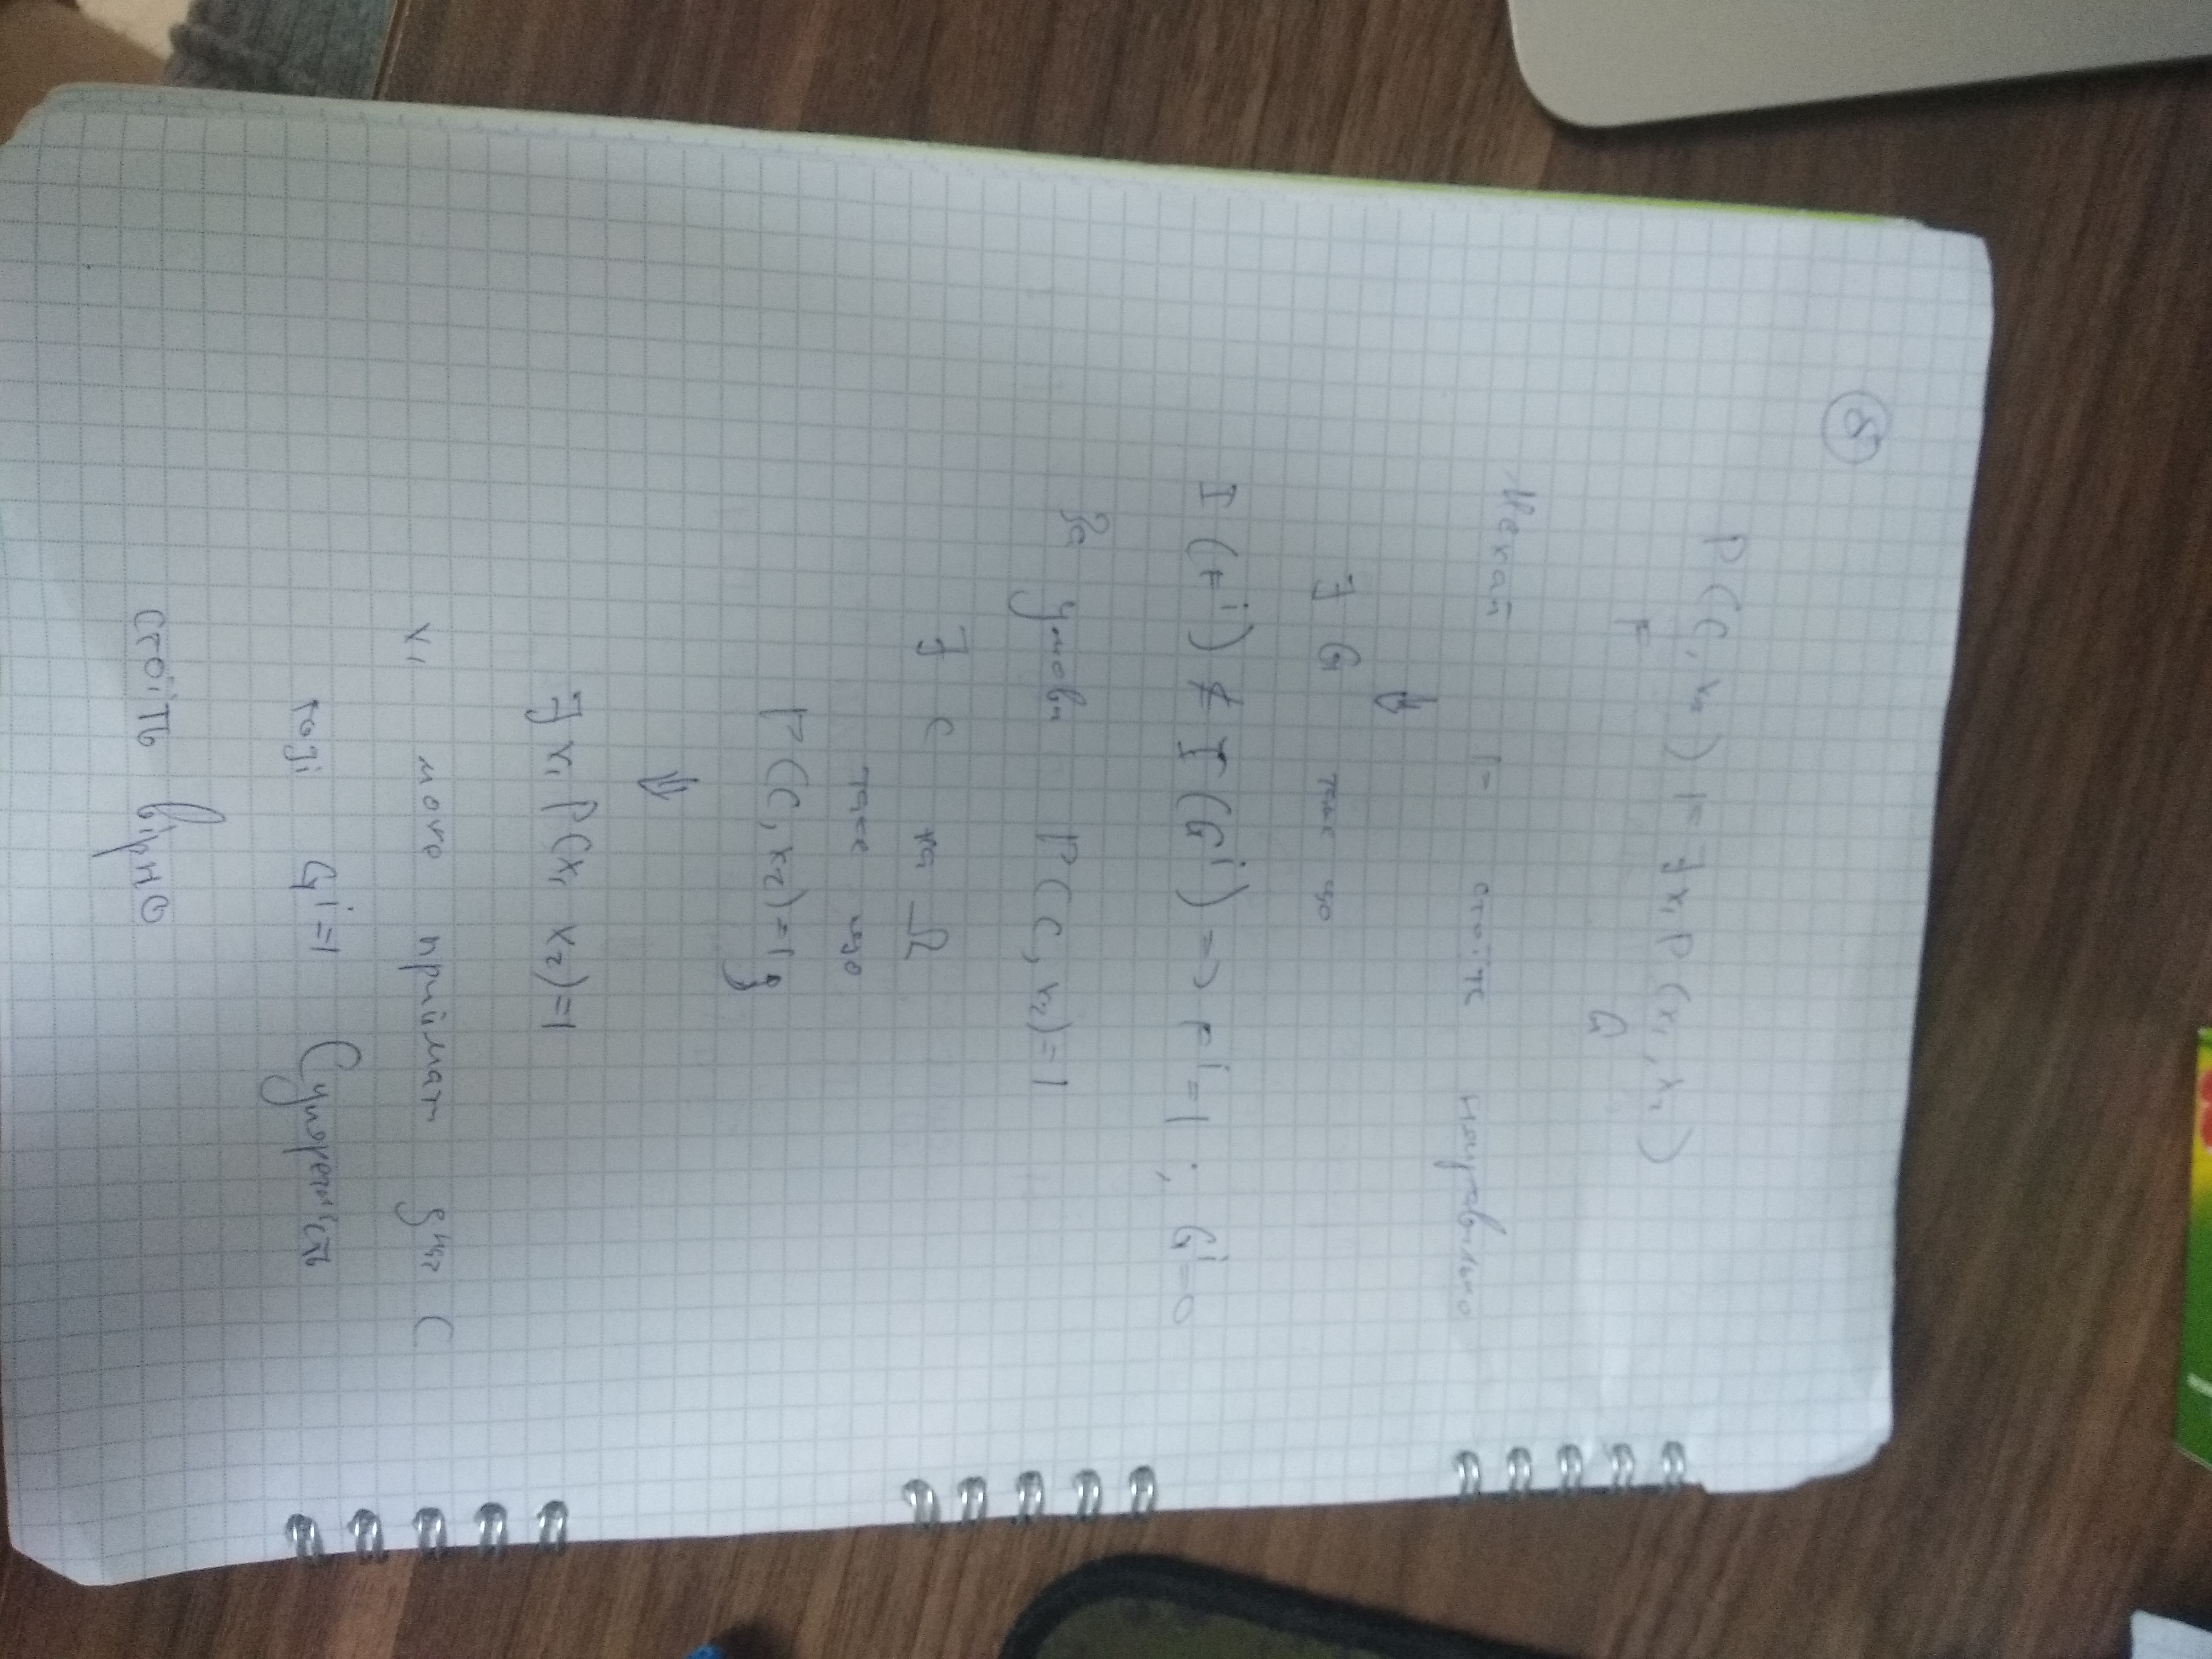 ⑧
P(C, x₂) ⊨ ∃x₁ P(x₁, x₂)
F G
Нехай ⊨ стоїть неправильно
⇓
∃ G таке що
I(F') ≰ I(G') => F' = 1 ; G' = 0
За умови P(C, x₂) = 1
∃ C на Ω
таке що
P(C, x₂) = 1
⇓
∃ x₁ P(x₁ x₂) = 1
x₁ може приймати знач C
тоді G' = 1 Суперечність
стоїть вірно